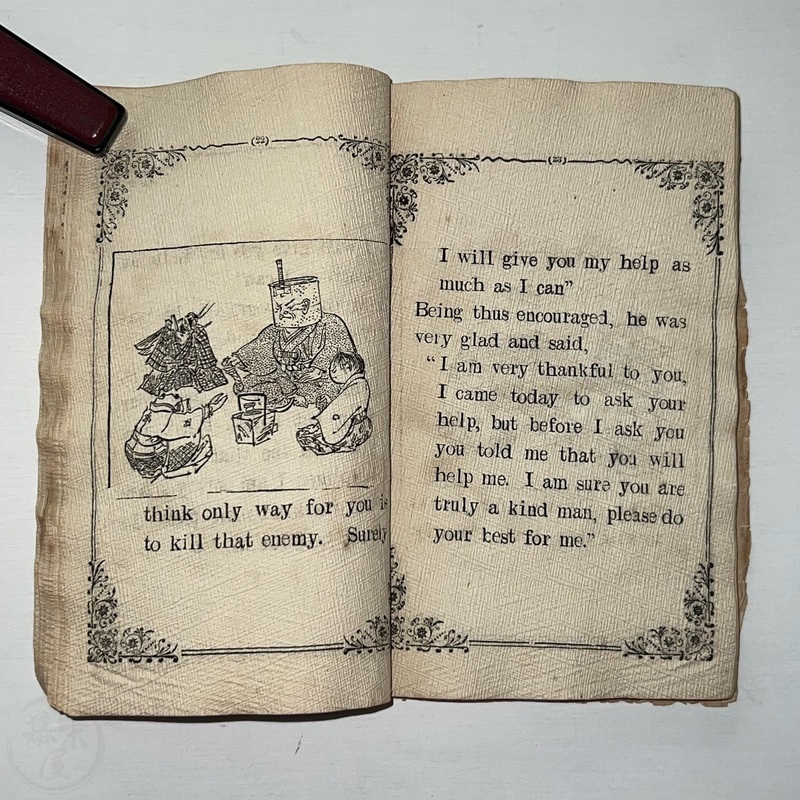 (22)
think only way for you is
to kill that enemy. Surely
(23)
I will give you my help as
much as I can”
Being thus encouraged, he was
very glad and said,
“I am very thankful to you,
I came today to ask your
help, but before I ask you
you told me that you will
help me. I am sure you are
truly a kind man, please do
your best for me.”